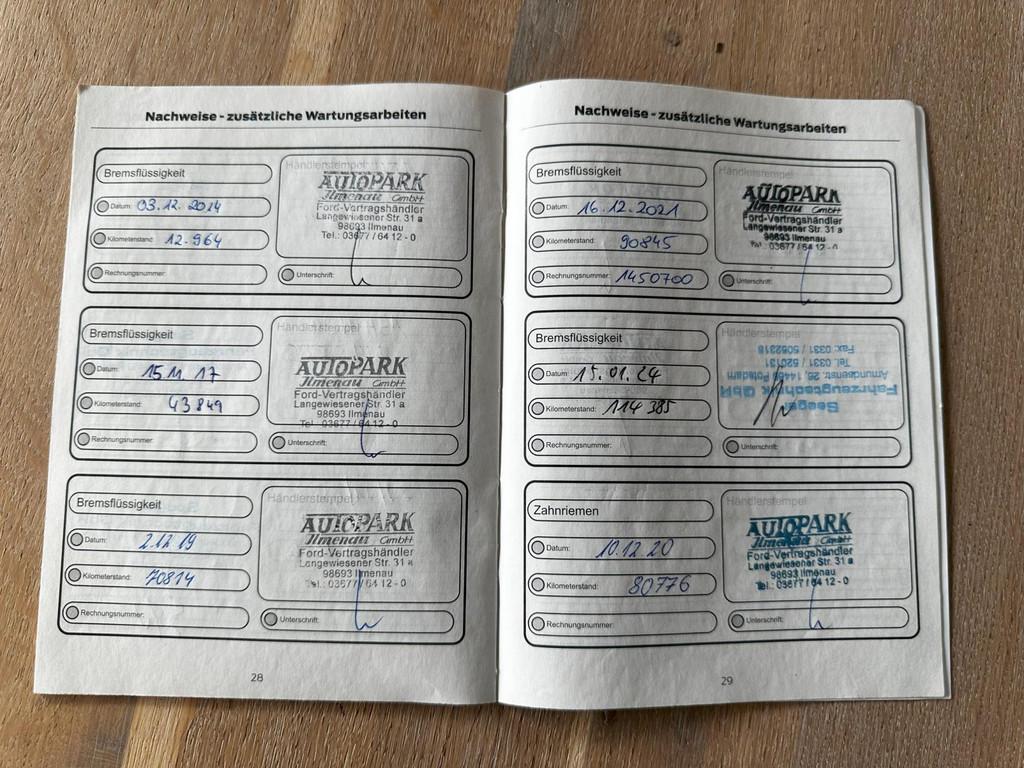 Nachweise - zusätzliche Wartungsarbeiten
Bremsflüssigkeit
Datum: 03.12.2014
Kilometerstand: 12.964
Rechnungsnummer:
Händlerstempel
AUTOPARK
Ilmenau GmbH
Ford-Vertragshändler
Langewiesener Str. 31 a
98693 Ilmenau
Tel.: 03677 / 64 12 - 0
Unterschrift:
Bremsflüssigkeit
Datum: 15.11.17
Kilometerstand: 43849
Rechnungsnummer:
Händlerstempel
AUTOPARK
Ilmenau GmbH
Ford-Vertragshändler
Langewiesener Str. 31 a
98693 Ilmenau
Tel.: 03677 / 64 12 - 0
Unterschrift:
Bremsflüssigkeit
Datum: 2.12.19
Kilometerstand: 70814
Rechnungsnummer:
Händlerstempel
AUTOPARK
Ilmenau GmbH
Ford-Vertragshändler
Langewiesener Str. 31 a
98693 Ilmenau
Tel.: 03677 / 64 12 - 0
Unterschrift:
28
Nachweise - zusätzliche Wartungsarbeiten
Bremsflüssigkeit
Datum: 16.12.2021
Kilometerstand: 90845
Rechnungsnummer: 1450700
Händlerstempel
AUTOPARK
Ilmenau GmbH
Ford-Vertragshändler
Langewiesener Str. 31 a
98693 Ilmenau
Tel.: 03677 / 64 12 - 0
Unterschrift:
Bremsflüssigkeit
Datum: 15.01.24
Kilometerstand: 114385
Rechnungsnummer:
Händlerstempel
Seeger
Fahrzeugtechnik GbR
Amundsenstr. 26, 14469 Potsdam
Tel. 0331 / 520131
Fax: 0331 / 5052318
Unterschrift:
Zahnriemen
Datum: 10.12.20
Kilometerstand: 80776
Rechnungsnummer:
Händlerstempel
AUTOPARK
Ilmenau GmbH
Ford-Vertragshändler
Langewiesener Str. 31 a
98693 Ilmenau
Tel.: 03677 / 64 12 - 0
Unterschrift:
29